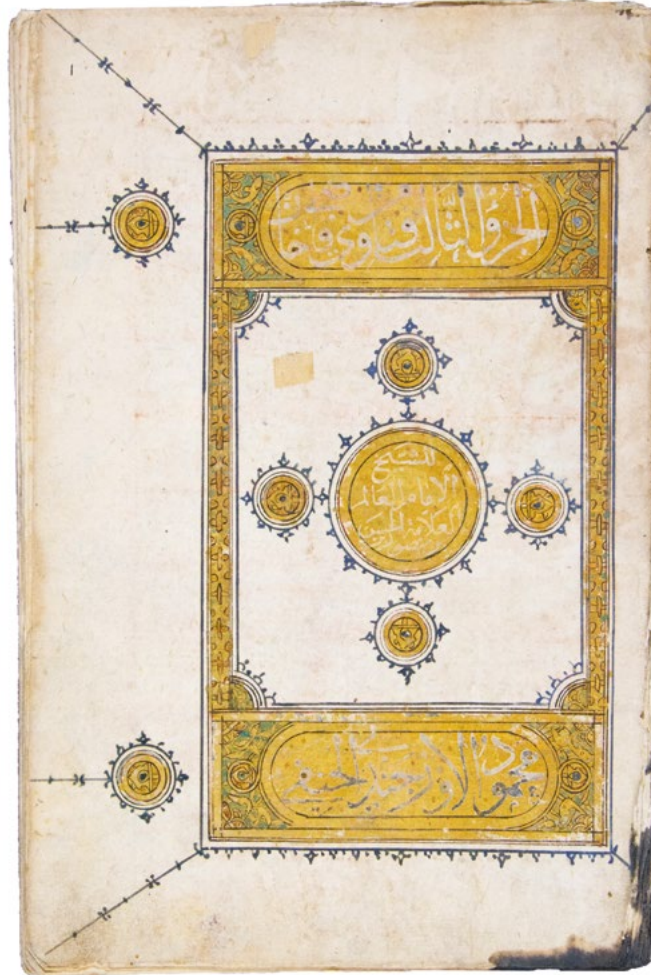 الجزؤ الثالث من فتاوي قاضي خان
للشيخ
الامام العالم
العلامة الحسن
بن منصور بن
محمود الاوزجندي الحنفي